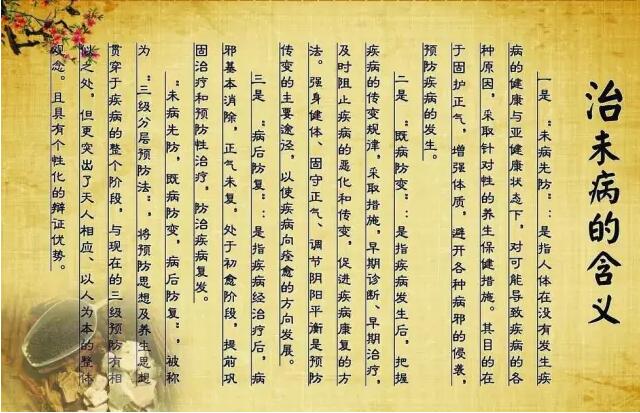 治未病的含义
一是“未病先防”：是指人体在没有发生疾
病的健康与亚健康状态下，对可能导致疾病的各
种原因，采取针对性的养生保健措施。其目的在
于固护正气，增强体质，避开各种病邪的侵袭，
预防疾病的发生。
二是“既病防变”：是指疾病发生后，把握
疾病的传变规律，采取措施，早期诊断、早期治疗，
及时阻止疾病的恶化和传变，促进疾病康复的方
法。强身健体、固守正气、调节阴阳平衡是预防
传变的主要途径，以使疾病向痊愈的方向发展。
三是“病后防复”：是指疾病经治疗后，病
邪基本消除，正气未复，处于初愈阶段，提前巩
固治疗和预防性治疗，防治疾病复发。
“未病先防，既病防变，病后防复”，被称
为“三级分层预防法”，将预防思想及养生思想
贯穿于疾病的整个阶段，与现在的三级预防有相
似之处，但更突出了天人相应、以人为本的整体
观念。且具有个性化的辩证优势。